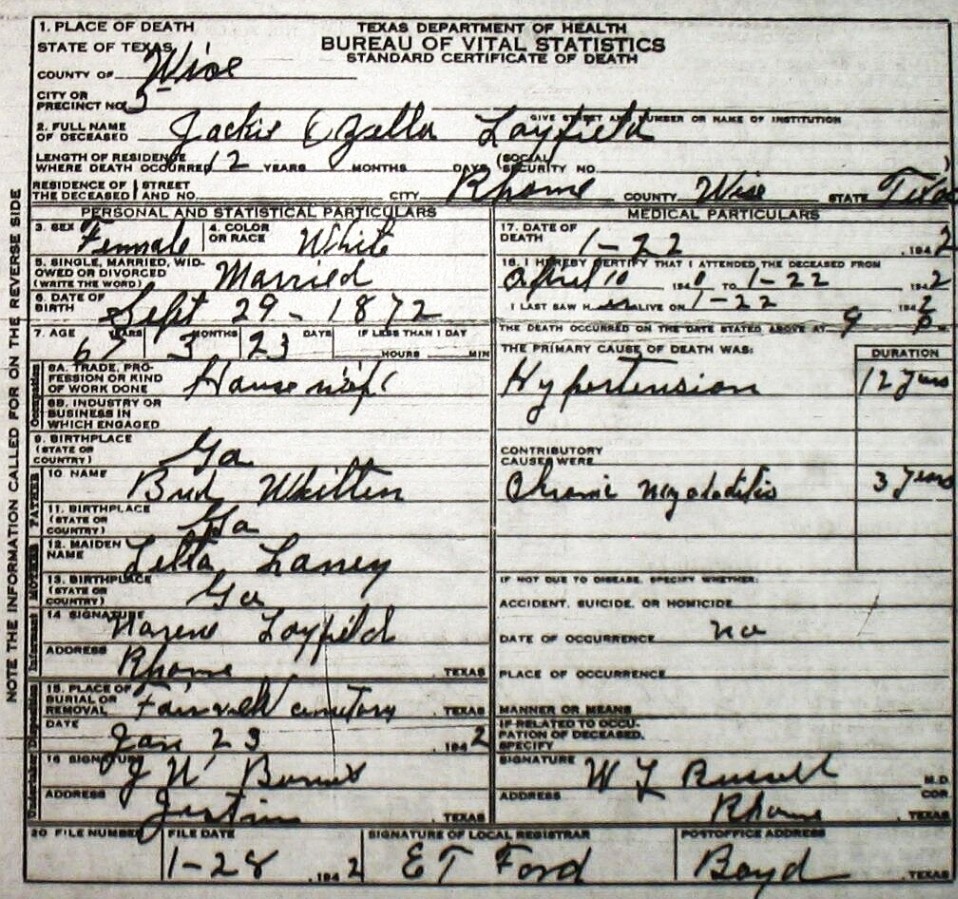 NOTE THE INFORMATION CALLED FOR ON THE REVERSE SIDE
TEXAS DEPARTMENT OF HEALTH
BUREAU OF VITAL STATISTICS
STANDARD CERTIFICATE OF DEATH
1. PLACE OF DEATH
STATE OF TEXAS
COUNTY OF Wise
CITY OR
PRECINCT NO. 5
GIVE STREET AND NUMBER OR NAME OF INSTITUTION
2. FULL NAME
OF DECEASED Jackie Ozella Layfield
LENGTH OF RESIDENCE
WHERE DEATH OCCURRED 12 YEARS MONTHS DAYS (SOCIAL SECURITY NO. )
RESIDENCE OF THE DECEASED STREET AND NO. CITY Rhome COUNTY Wise STATE Texas
PERSONAL AND STATISTICAL PARTICULARS
3. SEX Female 4. COLOR OR RACE White
5. SINGLE, MARRIED, WID-
OWED OR DIVORCED
(WRITE THE WORD) Married
6. DATE OF
BIRTH Sept 29 - 1872
7. AGE YEARS MONTHS DAYS IF LESS THAN 1 DAY
3 23 HOURS MIN
Occupation
8A. TRADE, PRO-
FESSION OR KIND
OF WORK DONE House wife
8B. INDUSTRY OR
BUSINESS IN
WHICH ENGAGED
9. BIRTHPLACE
(STATE OR
COUNTRY) Ga
FATHER
10 NAME Bud Whitten
11. BIRTHPLACE
(STATE OR
COUNTRY) Ga
MOTHER
12. MAIDEN
NAME Laney
13. BIRTHPLACE
(STATE OR
COUNTRY) Ga
Informant
14 SIGNATURE Layfield
ADDRESS Rhome TEXAS
Disposition
15. PLACE OF
BURIAL OR
REMOVAL cemetery TEXAS
DATE Jan 23 , 1942
Undertaker
16 SIGNATURE
ADDRESS Justin TEXAS
MEDICAL PARTICULARS
17. DATE OF
DEATH 1-22 , 1942
18. I HEREBY CERTIFY THAT I ATTENDED THE DECEASED FROM
April 10 1940 TO 1-22 1942
I LAST SAW H er ALIVE ON 1-22 1942
THE DEATH OCCURRED ON THE DATE STATED ABOVE AT 9 P
THE PRIMARY CAUSE OF DEATH WAS: DURATION
Hypertension 12 years
CONTRIBUTORY
CAUSES WERE
Chronic 3 years
IF NOT DUE TO DISEASE, SPECIFY WHETHER:
ACCIDENT, SUICIDE, OR HOMICIDE
DATE OF OCCURRENCE no
PLACE OF OCCURRENCE
MANNER OR MEANS
IF RELATED TO OCCU-
PATION OF DECEASED,
SPECIFY
SIGNATURE W L Russell M.D.
COR.
ADDRESS Rhome TEXAS
20 FILE NUMBER FILE DATE SIGNATURE OF LOCAL REGISTRAR POSTOFFICE ADDRESS
1-28 , 1942 E T Ford Boyd TEXAS